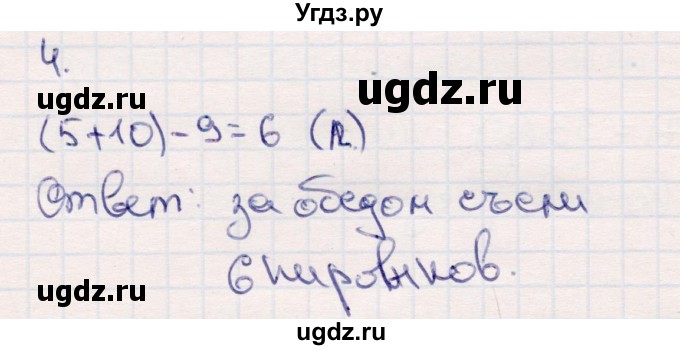 Угдз.ру
4.
ugdz.ru
ugdz.ru
(5+10)-9=6 (п.)
Ответ: за обедом съели
6 пирожков.
ugdz.ru
ugdz.ru
ugdz.ru
ugdz.ru